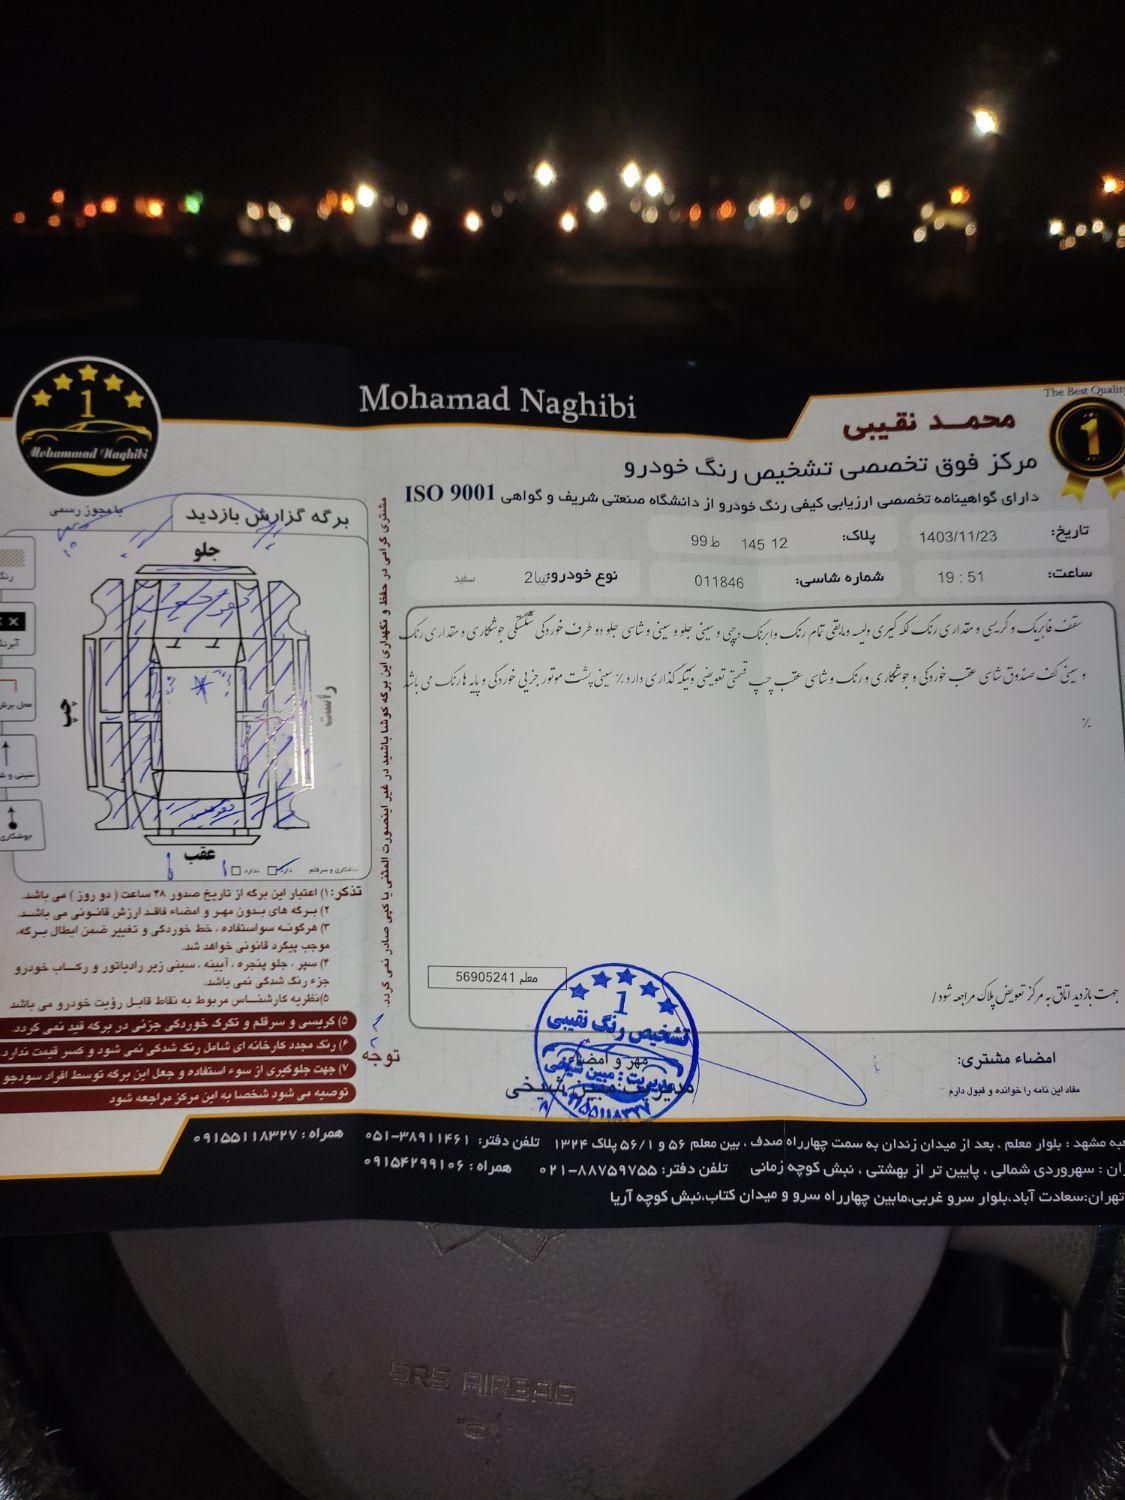 Mohamad Naghibi
The Best Quality
محمـد نقیبی
1
Mohammad Naghibi
مرکز فوق تخصصی تشخیص رنگ خودرو
دارای گواهینامه تخصصی ارزیابی کیفی رنگ خودرو از دانشگاه صنعتی شریف و گواهی ISO 9001
تاریخ: 1403/11/23
پلاک: 12 145 ط 99
ساعت: 19 : 51
شماره شاسی: 011846
نوع خودرو: تیبا2 سفید
سقف فابریک و گریسی و مقداری رنگ لکه گیری ولیسه ومابقی تمام رنگ وابرنگ وپچی و سینی جلو و سینی وشاسی جلو دو طرف خوردگی شکستگی جوشکاری و مقداری رنگ
و سینی کف صندوق شاسی عقب خوردگی و جوشکاری و رنگ وشاسی عقب چپ قسمتی تعویضی وتیکه گذاری دارد٪ سینی پشت موتور جزیی خوردگی و پایه ها رنگ می باشد
٪
معلم 56905241
جهت بازدید اتاق به مرکز تعویض پلاک مراجعه شود /
امضاء مشتری:
مفاد این نامه را خوانده و قبول دارم
مهر و امضاء:
مدیریت: مبین شیخی
1
تشخیص رنگ نقیبی
مدیریت: مبین شیخی
۰۹۱۵۵۱۱۸۳۲۷
با مجوز رسمی
برگه گزارش بازدید
جلو
چپ
راست
تعویض
عقب
صافکاری و سرقلم دارد ندارد
رنگ
محل برش
جوشکاری
مشتری گرامی در حفظ و نگهداری این برگه کوشا باشید در غیر اینصورت المثنی یا کپی صادر نمی گردد.
تذکر: ۱) اعتبار این برگه از تاریخ صدور ۴۸ ساعت ( دو روز ) می باشد.
۲) برگه های بدون مهر و امضاء فاقد ارزش قانونی می باشـد.
۳) هرگونه سواستفاده ، خط خوردگی و تغییر ضمن ابطال برگه،
موجب پیگرد قانونی خواهد شد.
۴) سپر ، جلو پنجره ، آیینه ، سینی زیر رادیاتور و رکـاب خودرو
جزء رنگ شدگی نمی باشد.
۵)نظریه کارشناس مربوط به نقاط قابل رؤیت خودرو می باشد
توجه
۵) گریسی و سرقلم و تکرک خوردگی جزئی در برگه قید نمی گردد.
۶) رنگ مجدد کارخانه ای شامل رنگ شدگی نمی شود و کسر قیمت ندارد.
۷) جهت جلوگیری از سوء استفاده و جعل این برگه توسط افراد سودجو
توصیه می شود شخصا به این مرکز مراجعه شود
مشهد : بلوار معلم ، بعد از میدان زندان به سمت چهارراه صدف ، بین معلم ۵۶ و ۵۶/۱ پلاک ۱۳۲۴ تلفن دفتر: ۳۸۹۱۱۴۶۱-۰۵۱ همراه : ۰۹۱۵۵۱۱۸۳۲۷
: سهروردی شمالی ، پایین تر از بهشتی ، نبش کوچه زمانی تلفن دفتر: ۸۸۷۵۹۷۵۵-۰۲۱ همراه : ۰۹۱۵۴۲۹۹۱۰۶
تهران:سعادت آباد،بلوار سرو غربی،مابین چهارراه سرو و میدان کتاب،نبش کوچه آریا
SRS AIRBAG